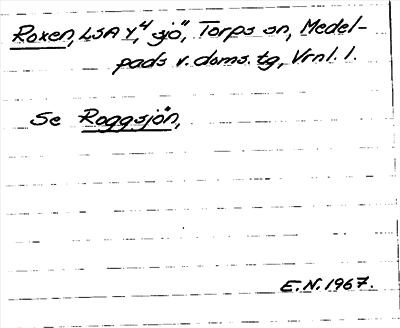 Roxen, LSA Y, 4 "sjö", Torps sn, Medel-
pads v. doms. tg, Vrnl. 1.
Se Roggsjön,
E.N. 1967.